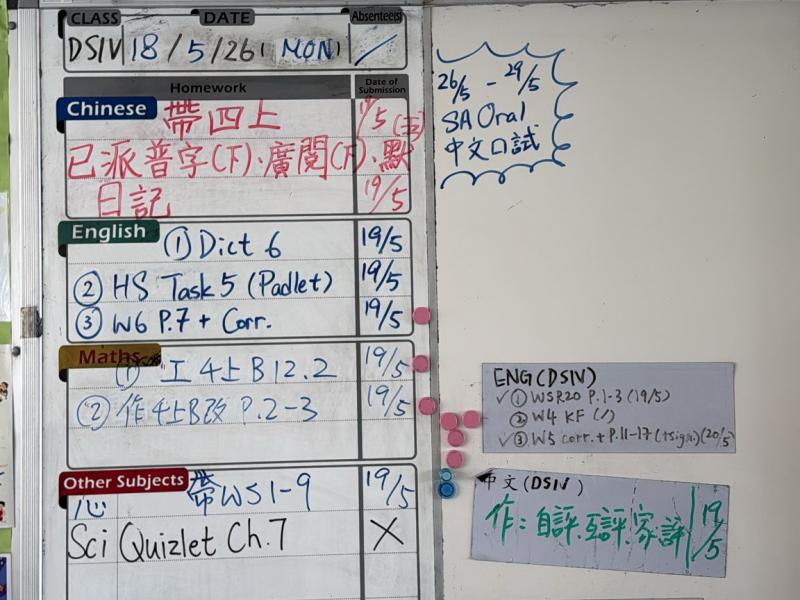 CLASS DATE Absentee(s)
DSIV 18/5/26( MON) /
Homework Date of Submission
Chinese 帶四上 19/5(五)
已派普字(下)、廣閱(下)、默
日記 19/5
English ① Dict 6 19/5
② HS Task 5 (Padlet) 19/5
③ W6 P.7 + Corr. 19/5
Maths ① 工4上B12.2 19/5
② 作4上B改 P.2-3 19/5
Other Subjects
心 帶WS1-9 19/5
Sci Quizlet Ch.7 X
26/5 - 29/5
SA Oral
中文口試
ENG(DSIV)
✓① WSR20 P.1-3 (19/5)
② W4 KF (/)
✓③ W5 corr. + P.11-17 (+sign.) (20/5)
中文(DSIV)
作：自評、互評、家評 19/5